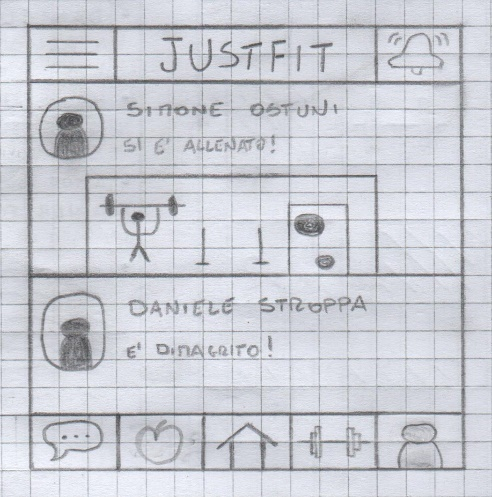 JUSTFIT
SIMONE OSTUNI
SI E' ALLENATO!
DANIELE STROPPA
E' DIMAGRITO!